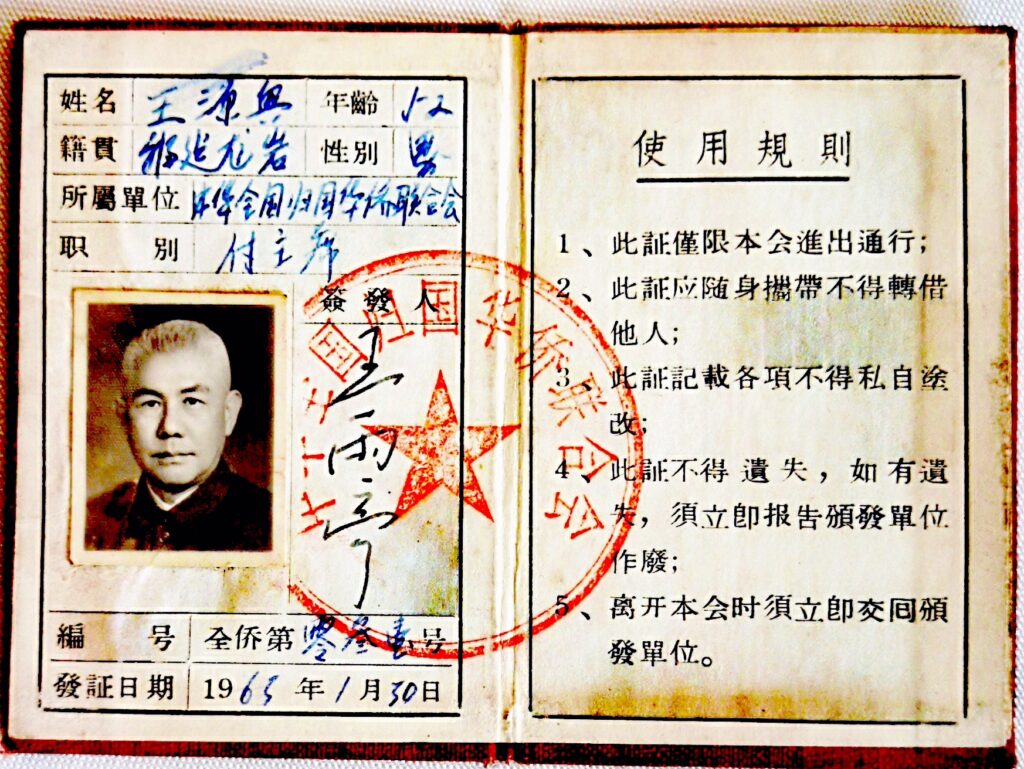 姓名 王源興 年齡 52
籍貫 福建龙岩 性別 男
所屬單位 中华全国归国华侨联合会
职別 付主席
簽發人
王雨亭
中华全国归国华侨联合会
編号 全侨第零叁壹号
發証日期 1963年1月30日
使用規則
1、此証僅限本会進出通行;
2、此証应随身攜帶不得轉借
他人;
3、此証記載各項不得私自塗
改;
4、此証不得遺失，如有遺
失，須立卽报告頒發單位
作廢;
5、离开本会时須立卽交囘頒
發單位。